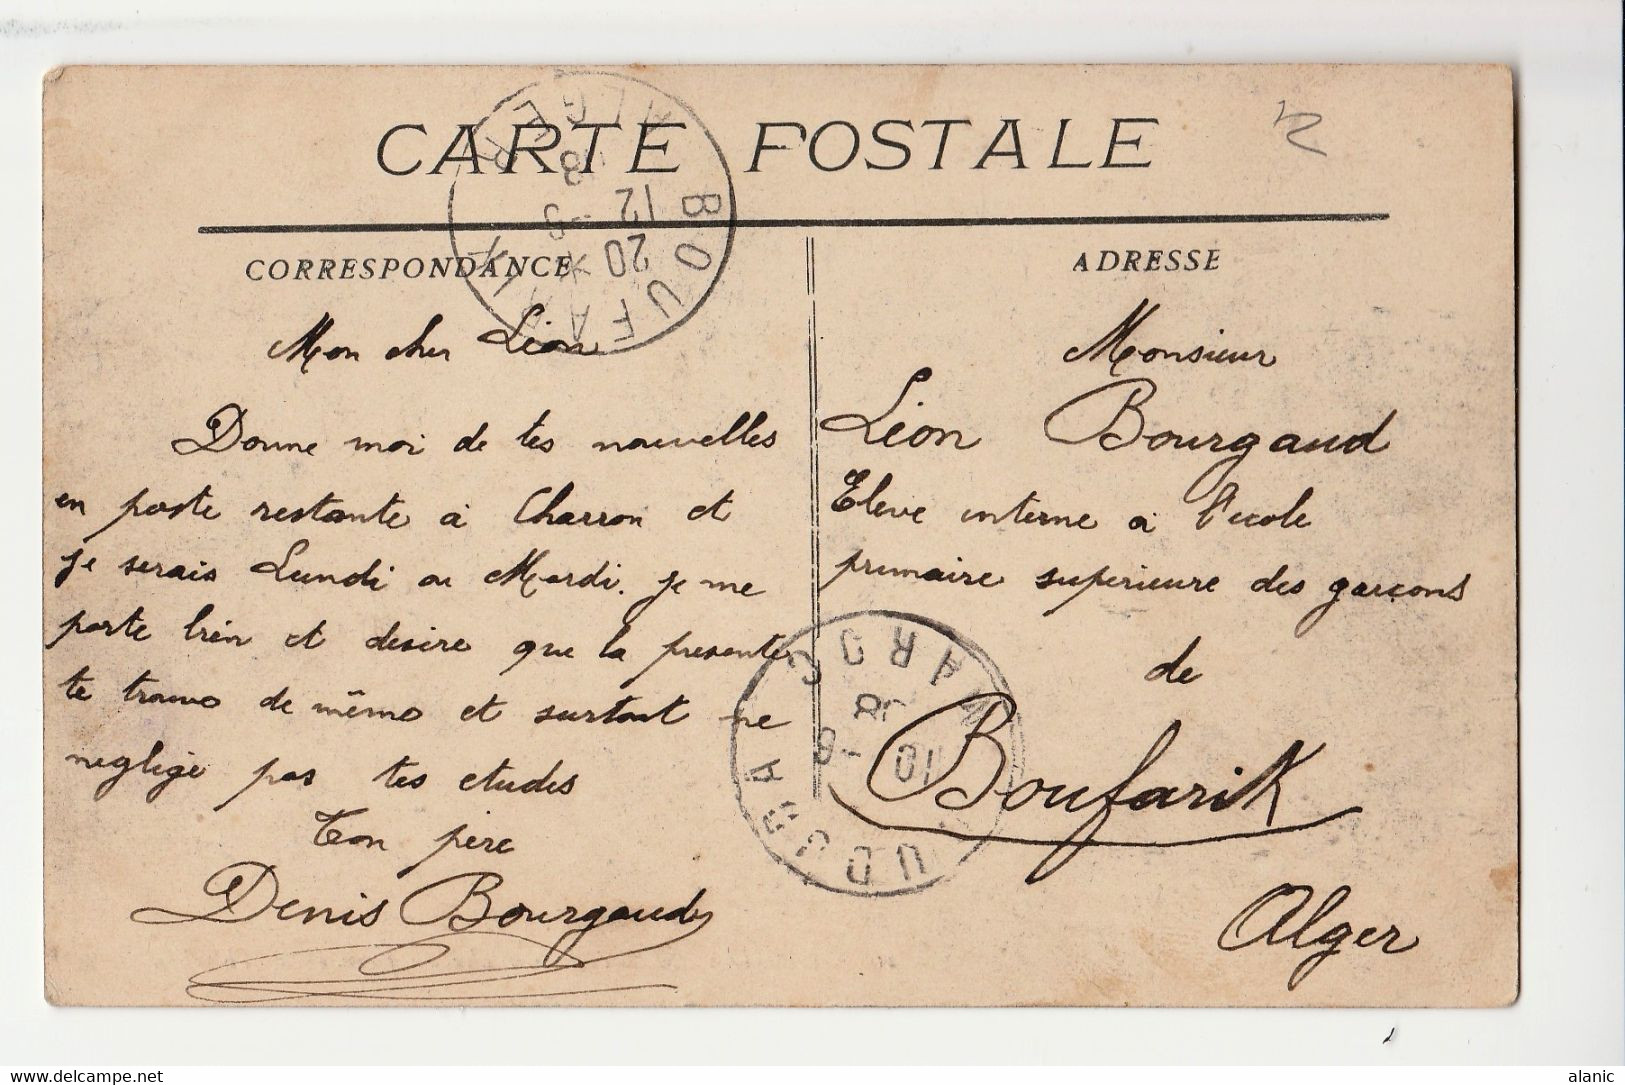 CARTE POSTALE
CORRESPONDANCE
Mon cher Léon
Donne moi de tes nouvelles
en poste restante à Charron et
je serais Lundi ou Mardi. je me
porte bien et desire que la presente
te trouve de même et surtout ne
neglige pas tes etudes
Ton père
Denis Bourgaud
ADRESSE
Monsieur
Léon Bourgaud
Eleve interne a l'ecole
primaire superieure des garçons
de
Boufarik
Alger
BOUFARIK
ALGER
12
20
OUDJDA
MAROC
10
www.delcampe.net
alanic